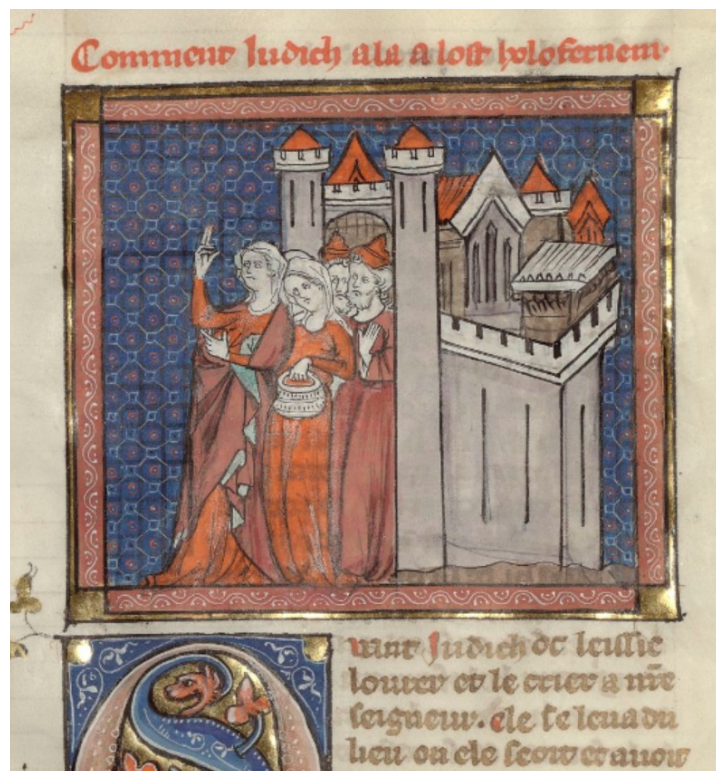 Comment Judich ala a lost holofernem.
uant Judich ot leissie
lourer et le crier a nre
seigneur. ele se leua du
lieu ou ele seoit et auoit